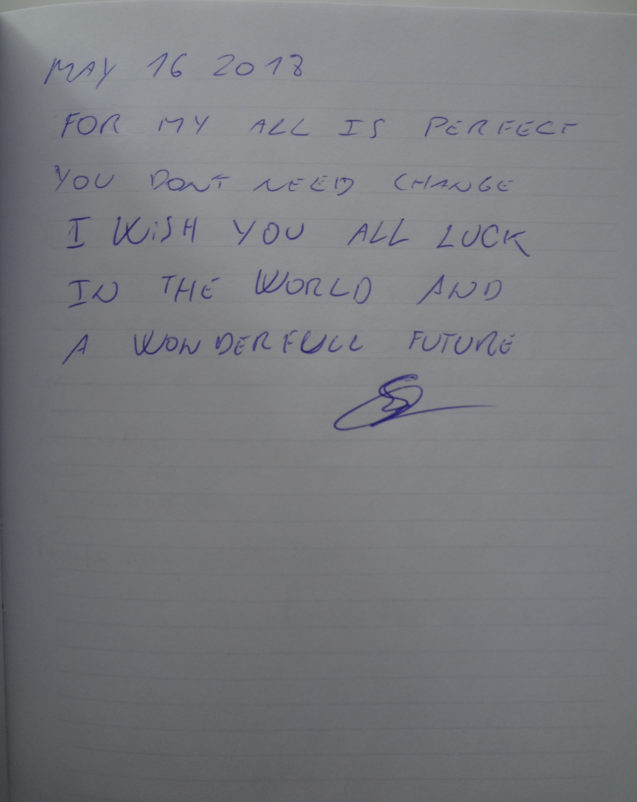 MAY 16 2018
FOR MY ALL IS PERFECT
YOU DONT NEED CHANGE
I WISH YOU ALL LUCK
IN THE WORLD AND
A WONDERFULL FUTURE